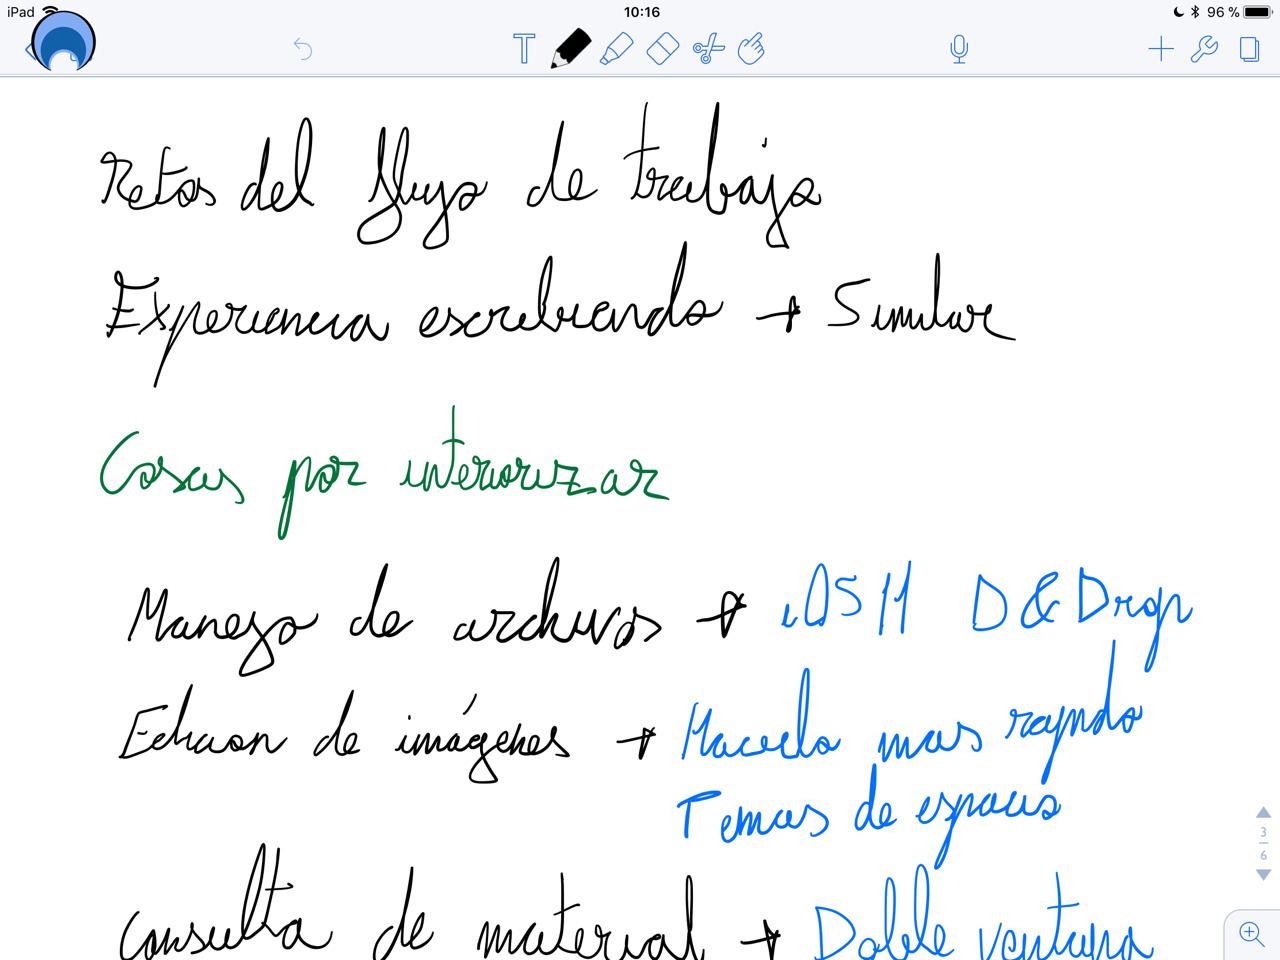 iPad 10:16 96 %
Retos del flujo de trabajo
Experiencia escribiendo → Similar
Cosas por interiorizar
Manejo de archivos → iOS 11 D & Drop
Edicion de imágenes → Hacerlo mas rapido
Temas de espacio
3
6
Consulta de material → Doble ventana